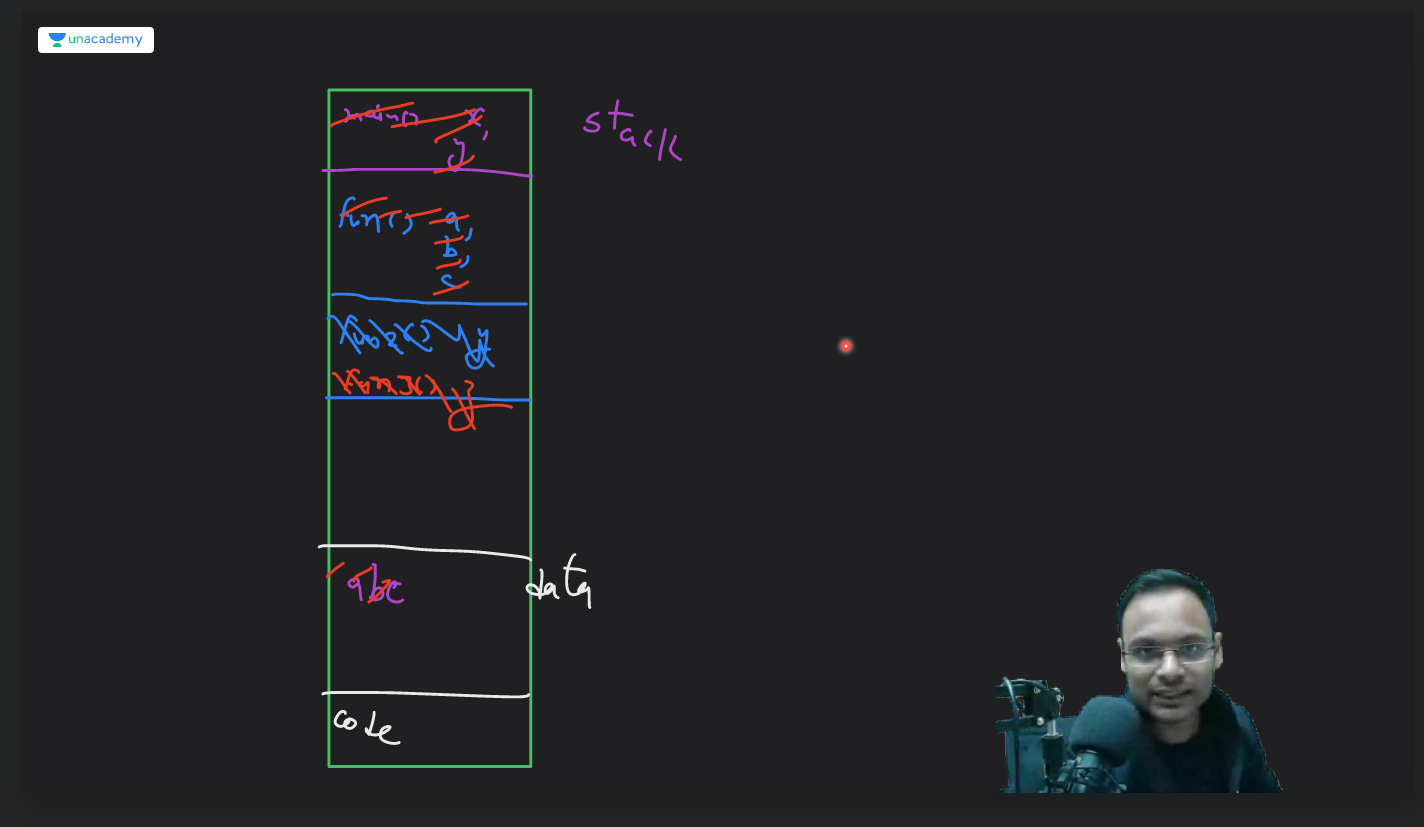 unacademy
main() x,
y
stack
fun() a,
b,
c
fun2() y
fun3() y
abc
data
code